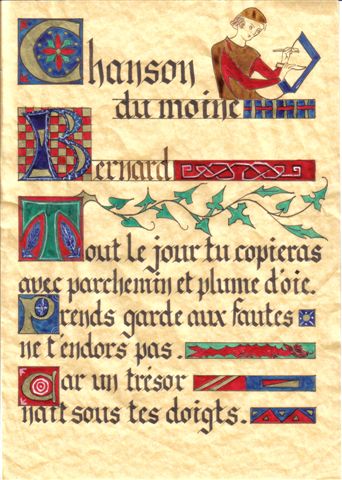 Chanson
du moine
Bernard
Tout le jour tu copieras
avec parchemin et plume d'oie.
Prends garde aux fautes
ne t'endors pas.
Car un trésor
naît sous tes doigts.